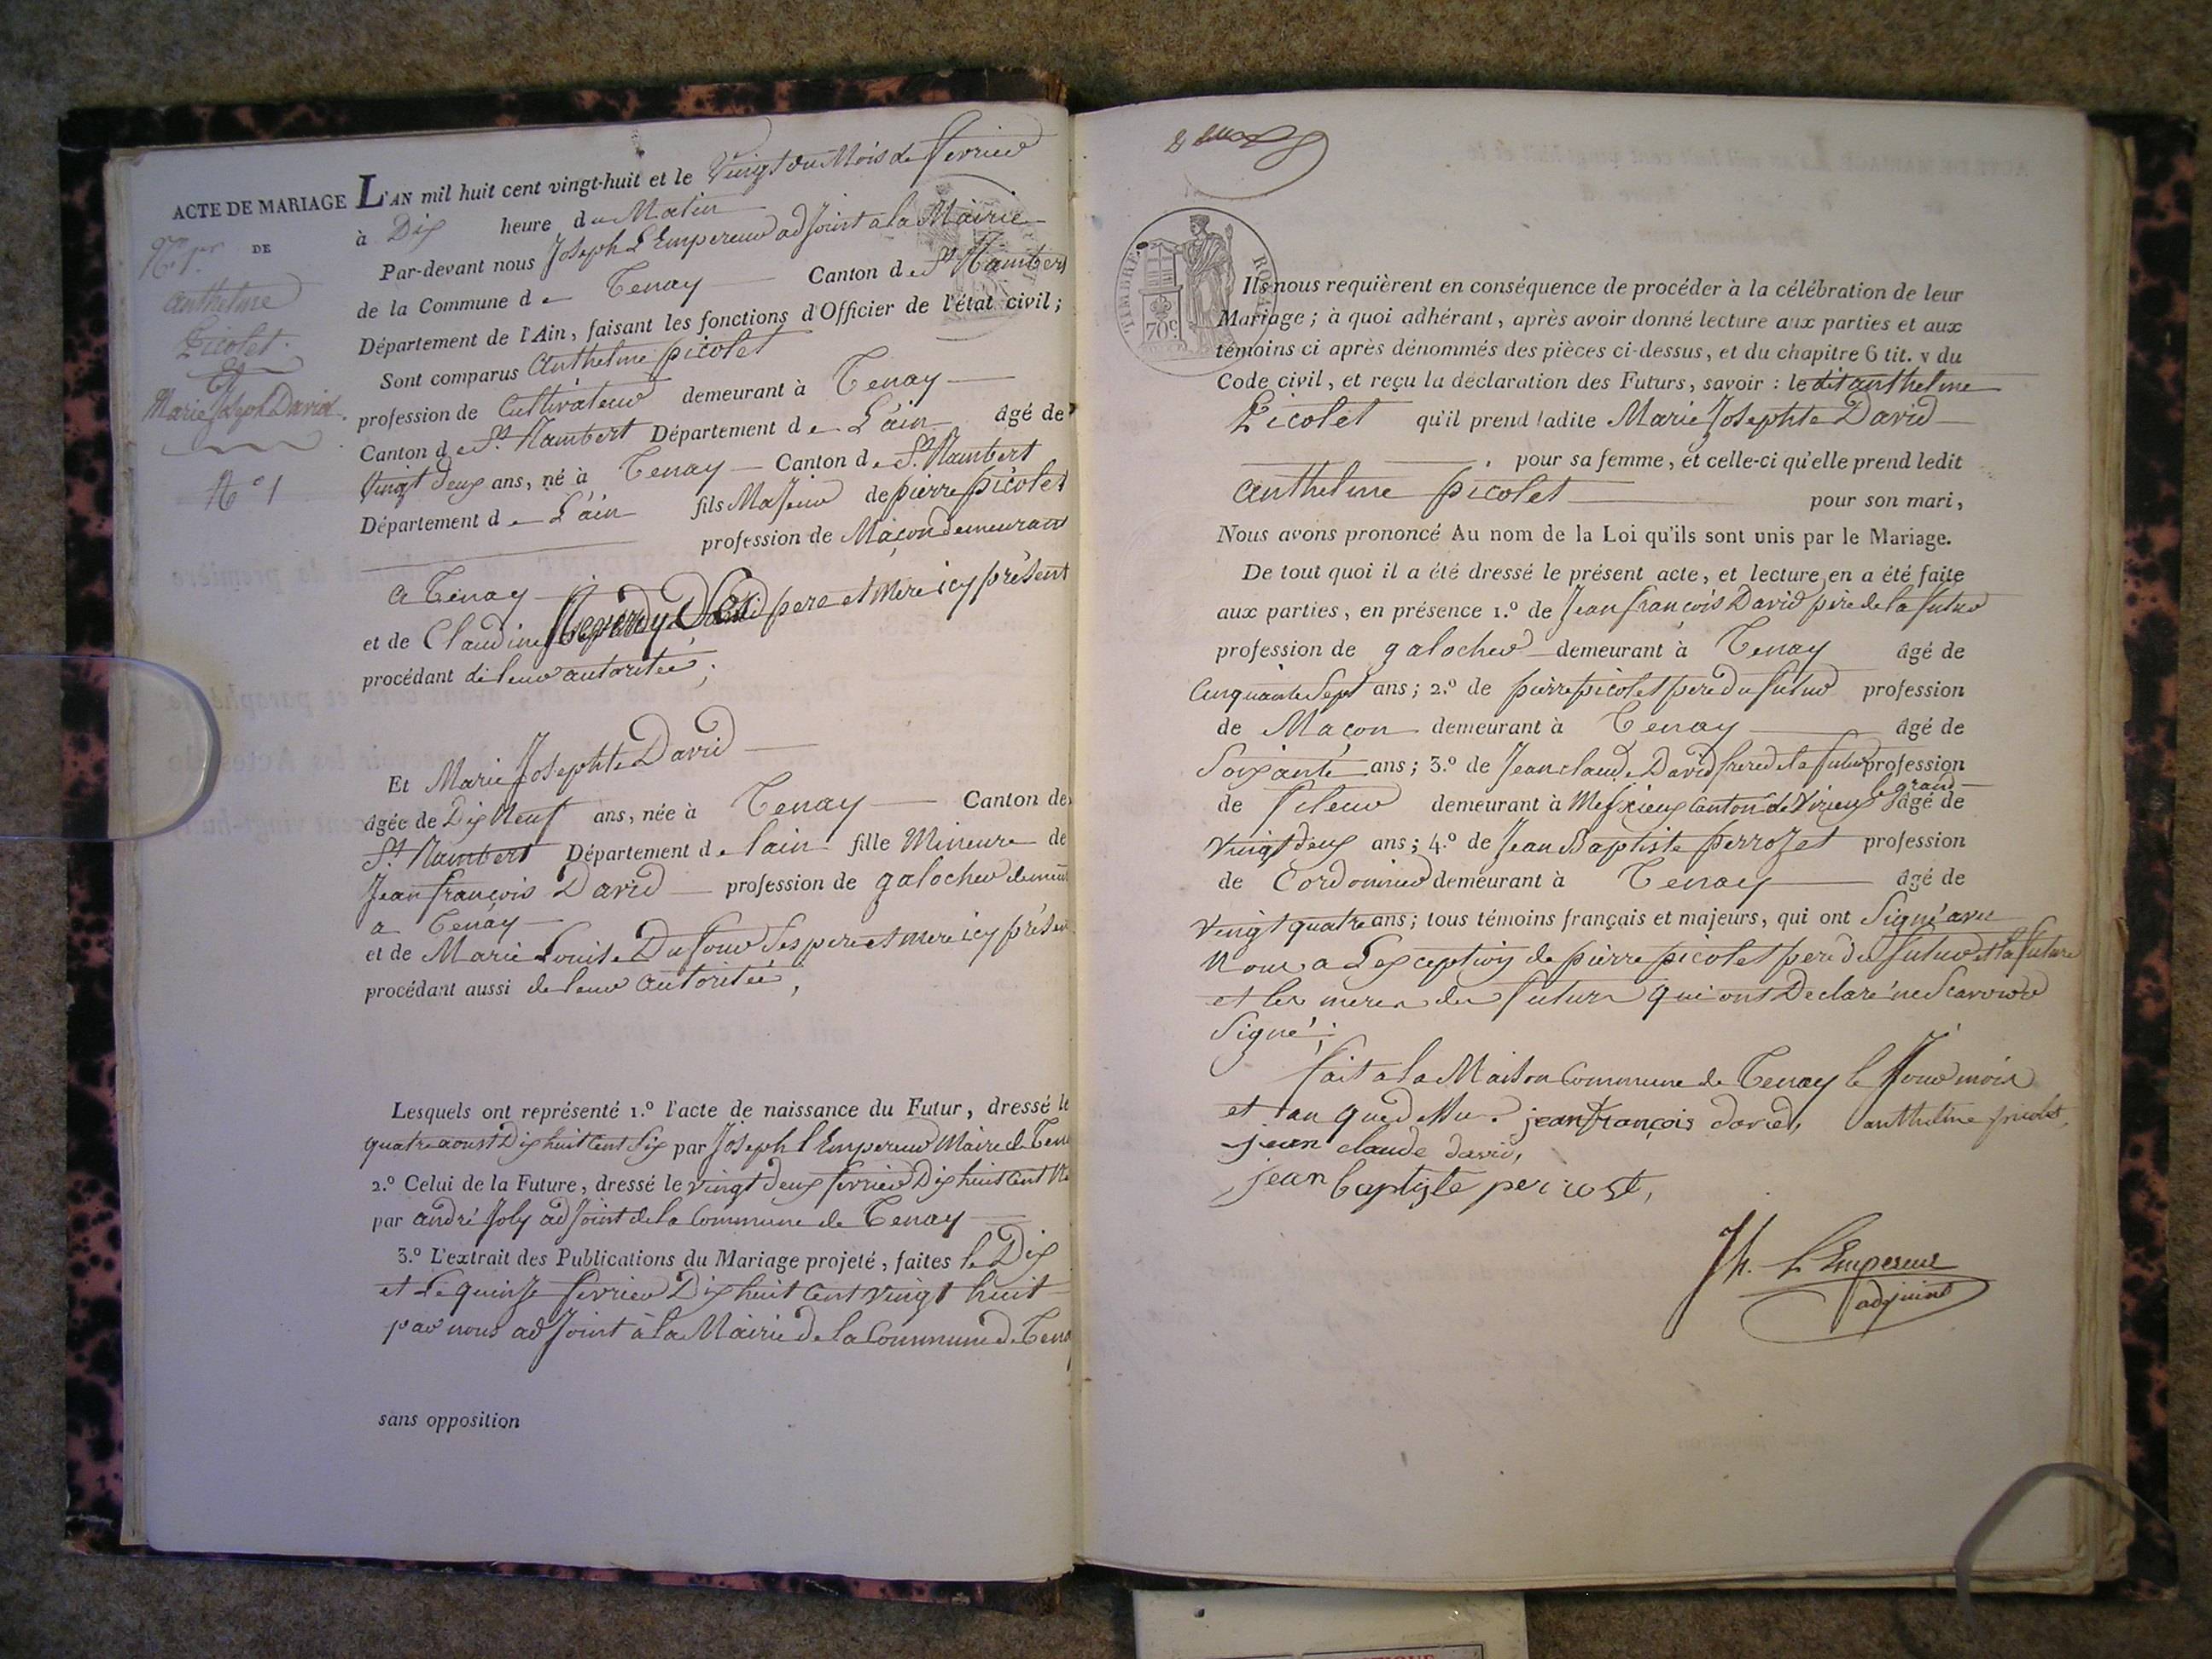 ACTE DE MARIAGE
DE
anthelme
Picolet.
Et
Marie Joseph David.
N° 1
L'AN mil huit cent vingt-huit et le Vingt du Mois de fevrier
à Dix heure du Matin
Par-devant nous Joseph L'Empereur adjoint a la Mairie
de la Commune de Tenay Canton de St Rambert
Département de l'Ain, faisant les fonctions d'Officier de l'état civil;
Sont comparus Anthelme picolet
profession de Cultivateur demeurant à Tenay
Canton de St. Rambert Département de L'ain âgé de
Vingt deux ans, né à Tenay Canton de St. Rambert
Département de L'ain fils Majeur de pierre picolet
profession de Maçon demeurant
a Tenay
et de Claudine pere et mere icy présent
procédant de leur autoritée;
Et Marie Josephte David
âgée de Dix Neuf ans, née à Tenay Canton de
St. Rambert Département de lain fille Mineure de
Jean françois David profession de galocheur demeurt
a Tenay
et de Marie Louise Dufour Ses pere et mere icy présen
procédant aussi de leur autoritée;
Lesquels ont représenté 1.° l'acte de naissance du Futur, dressé le
quatre aoust Dix huit Cent Six par Joseph l'Empereur Maire de Ten
2.° Celui de la Future, dressé le vingt deux fevrier Dix huit Cent Ne
par andré Joly adjoint de la Commune de Tenay
3.° L'extrait des Publications du Mariage projeté, faites le Dix
et Le quinze fevrier Dix huit Cent vingt huit
par nous adjoint à la Mairie de la Commune de Tena
sans opposition
TIMBRE ROYAL
70c
Ils nous requièrent en conséquence de procéder à la célébration de leur
Mariage; à quoi adhérant, après avoir donné lecture aux parties et aux
témoins ci après dénommés des pièces ci-dessus, et du chapitre 6 tit. v du
Code civil, et reçu la déclaration des Futurs, savoir : le dit anthelme
Picolet qu'il prend ladite Marie Josephte David
, pour sa femme, et celle-ci qu'elle prend ledit
anthelme picolet pour son mari,
Nous avons prononcé Au nom de la Loi qu'ils sont unis par le Mariage.
De tout quoi il a été dressé le présent acte, et lecture en a été faite
aux parties, en présence 1.° de Jean françois David pere de la futur
profession de galocheur demeurant à Tenay âgé de
Cinquante Sept ans; 2.° de pierre picolet pere du futur profession
de Maçon demeurant à Tenay âgé de
Soixante ans; 3.° de Jean claude David frere de la futur profession
de fileur demeurant à Messieux Canton de Virieux le grand âgé de
Vingt deux ans; 4.° de Jean Baptiste perrozet profession
de Cordonnier demeurant à Tenay âgé de
Vingt quatre ans; tous témoins français et majeurs, qui ont Signé avec
Nous a L'exception de pierre picolet pere du futur et la future
et les meres des futurs qui ont Declaré ne Scavoir
Signé;
fait a la Maison Commune de Tenay le Jour mois
et an que dessu. jean françois david, anthelme picolet,
jean claude david,
jean baptiste perrozet,
Jh. L'Empereur
adjoint